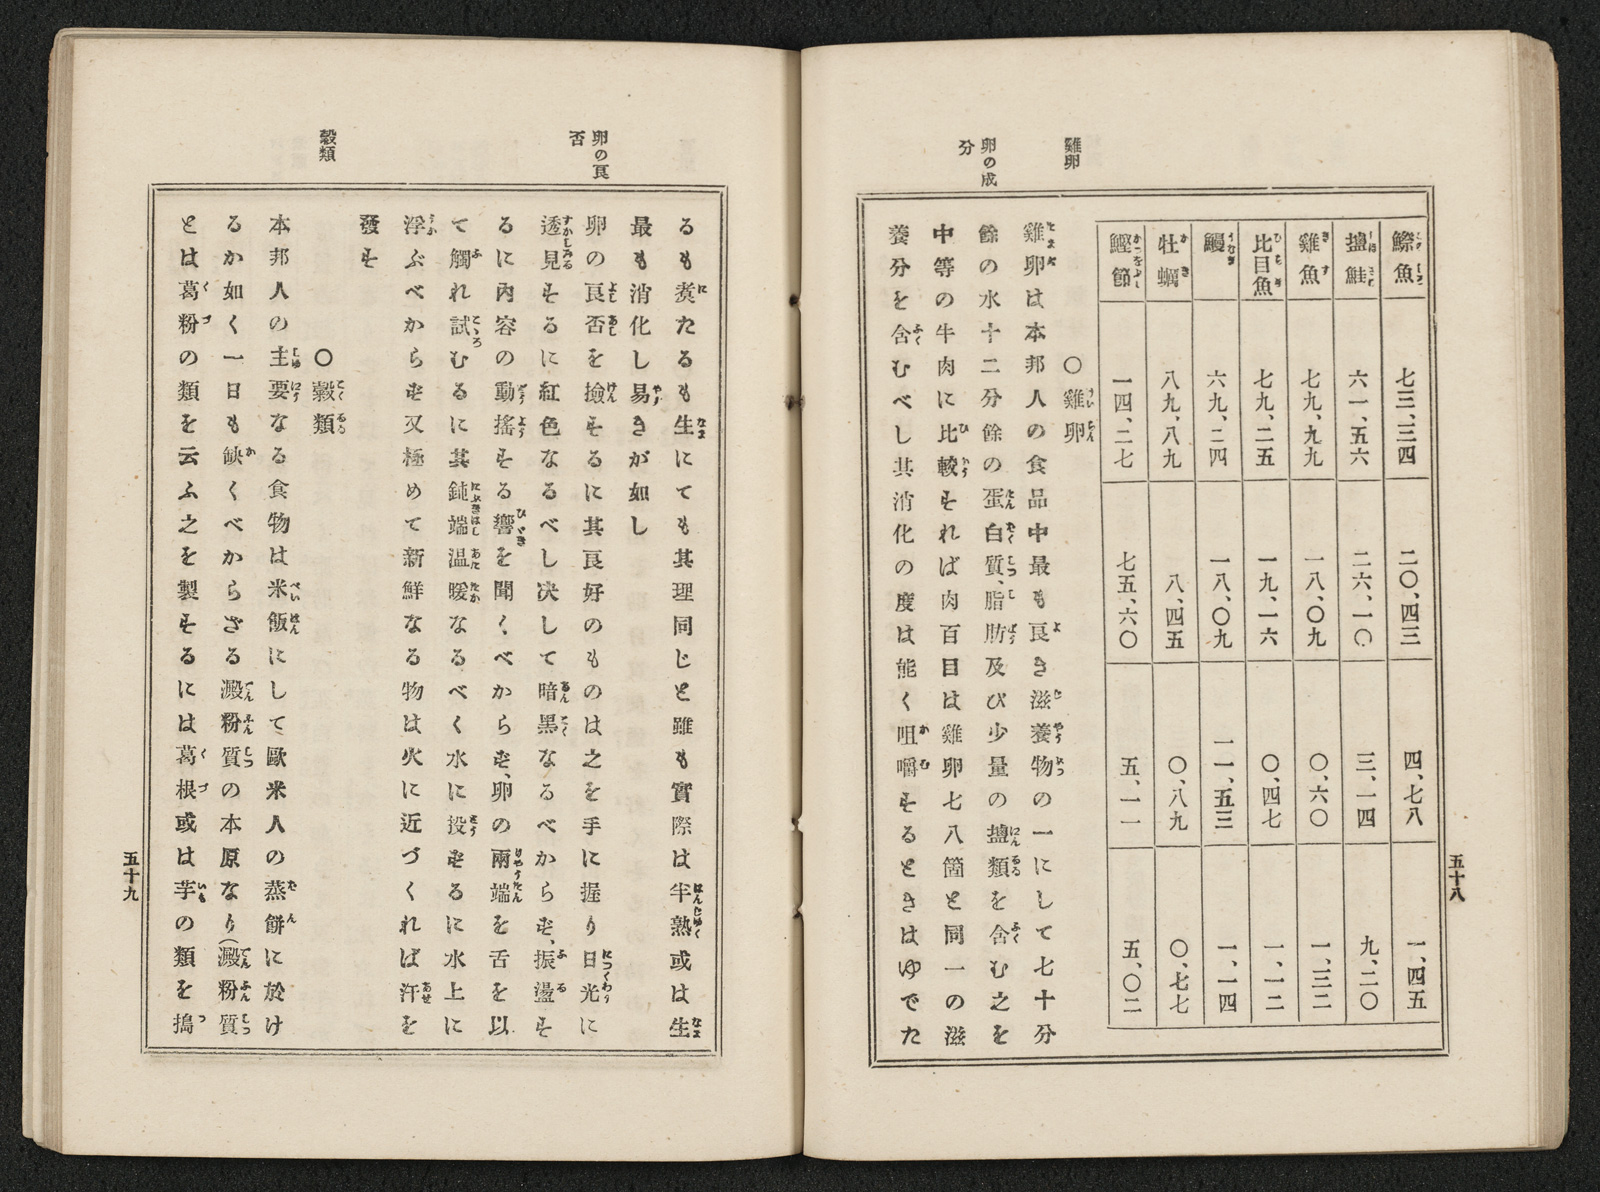 五十八
鰶魚 七三、三四 二〇、四三 四、七八 一、四五
鹽鮭 六一、五六 二六、一〇 三、一四 九、二〇
雞魚 七九、九九 一八、〇九 〇、六〇 一、三二
比目魚 七九、二五 一九、一六 〇、四七 一、一二
鰻 六九、二四 一八、〇九 一一、五三 一、一四
牡蠣 八九、八九 八、四五 〇、八九 〇、七七
鰹節 一四、二七 七五、六〇 五、一一 五、〇二
雞卵
〇雞卵
雞卵は本邦人の食品中最も良き滋養物の一にして七十分
卵の成
分
餘の水十二分餘の蛋白質、脂肪及び少量の鹽類を含む之を
中等の牛肉に比較すれば肉百目は雞卵七八箇と同一の滋
養分を含むべし其消化の度は能く咀嚼するときはゆでた
るも煑たるも生にても其理同じと雖も實際は半熟或は生
最も消化し易きが如し
卵の良
否
卵の良否を撿するに其良好のものは之を手に握り日光に
透見するに紅色なるべし决して暗黒なるべからず、振盪す
るに内容の動搖する響を聞くべからず、卵の兩端を舌を以
て觸れ試むるに其鈍端温暖なるべく水に投ずるに水上に
浮ぶべからず又極めて新鮮なる物は火に近づくれば汗を
發す
穀類
〇穀類
本邦人の主要なる食物は米飯にして歐米人の蒸餅に於け
るか如く一日も缺くべからざる澱粉質の本原なり(澱粉質
とは葛粉の類を云ふ之を製するには葛根或は芋の類を搗
五十九